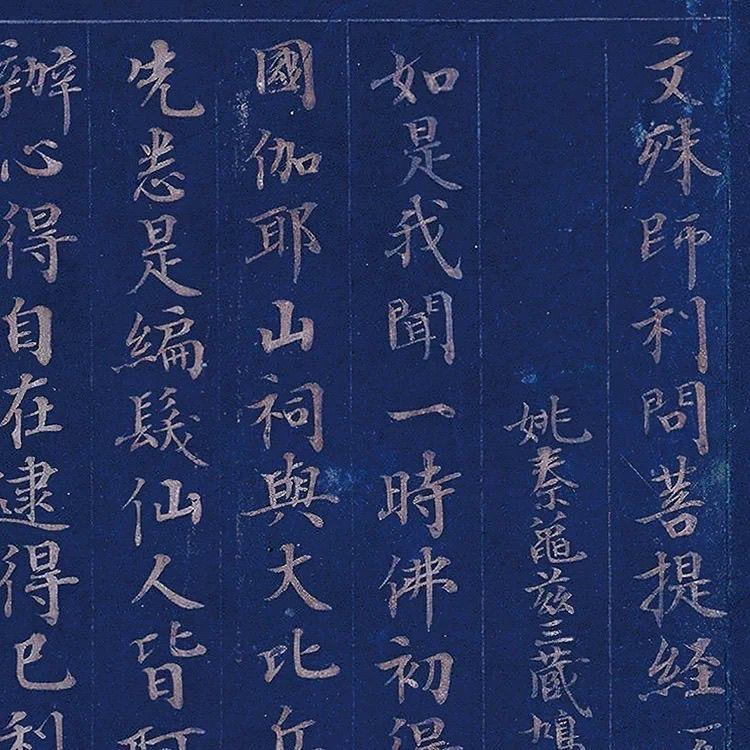 文殊師利問菩提經一
姚秦龜茲三藏鳩
如是我聞一時佛初得
國伽耶山祠與大比丘
先悉是編髮仙人皆阿
辦心得自在逮得已利